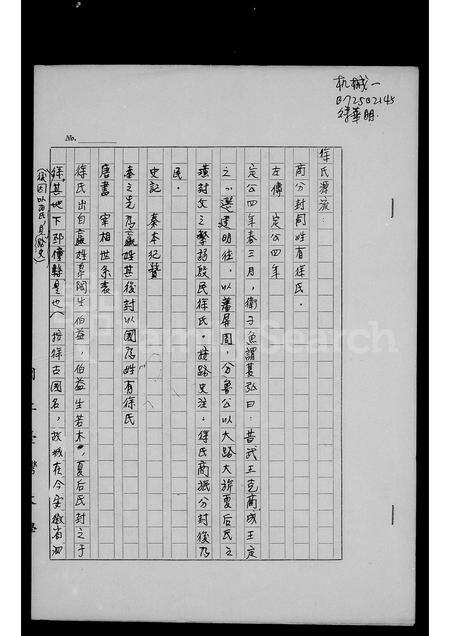 机械一
B72502145
徐華明
No.
徐氏源流:
商分封同姓有徐氏.
左傳 定公四年
定公四年春三月,衛子魚謂萇弘曰:昔武王克商,成王定
之,選建明德,以藩屏周,分魯公以大路大旂夏后氏之
璜封父之繁弱殷民徐氏.按路史注:徐氏商祇分封後為
民.
史記 秦本紀贊
秦之先為嬴姓其後封以國為姓有徐氏
唐書 宰相世系表
徐氏出自嬴姓皋陶生伯益,伯益生若木,夏后氏封之于
徐,其地下邳僮縣是也(按徐古國名,故城在今安徽省泗